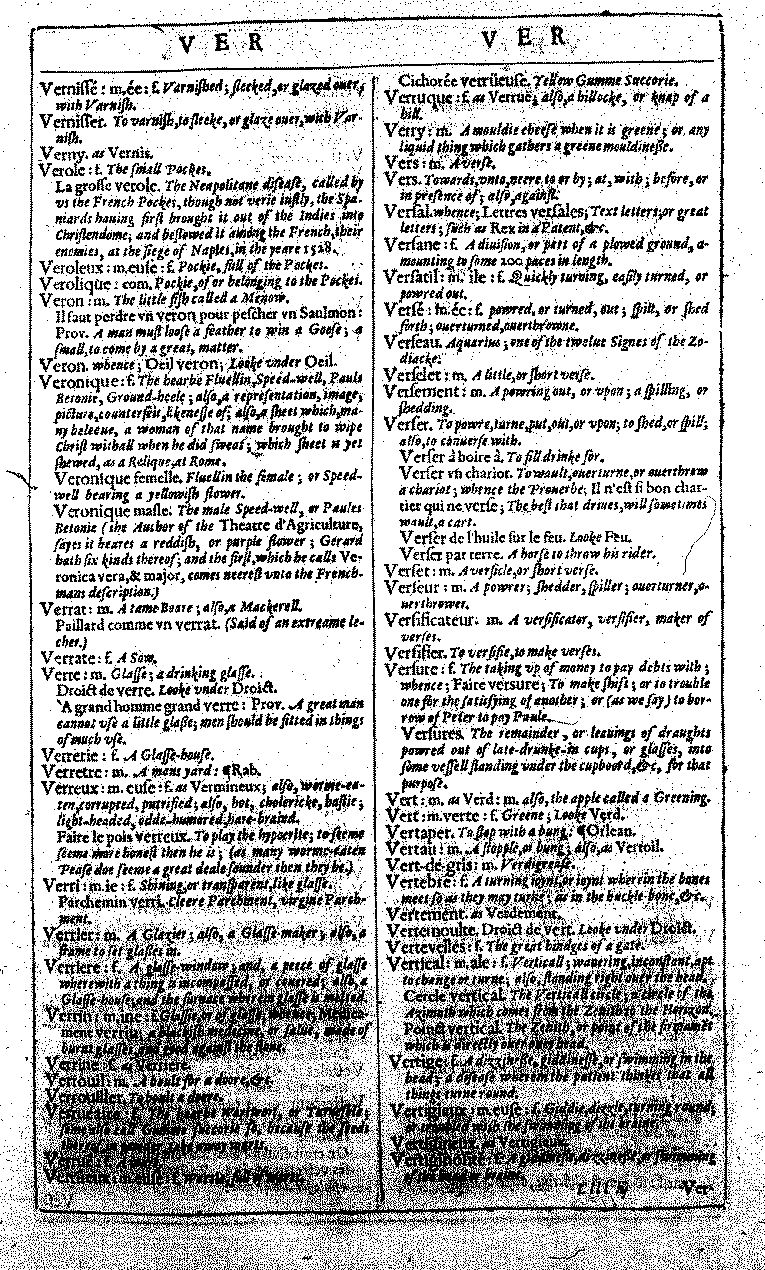 VER
VER
Vernissé: m. ée: f. Varnished; sleeked, or glazed ouer,
with Varnish.
Vernisser. To varnish, to sleeke, or glaze ouer, with Var-
nish.
Verny. as Vernis.
Verole: f. The small Pockes.
La grosse verole. The Neapolitane disease, called by
vs the French Pockes, though not verie iustly, the Spa-
niards hauing first brought it out of the Indies into
Christendome; and bestowed it among the French, their
enemies, at the siege of Naples, in the yeare 1528.
Veroleux: m. euse: f. Pockie, full of the Pockes.
Verolique: com. Pockie, of or belonging to the Pockes.
Veron: m. The little fish called a Menow.
Il faut perdre vn veron pour pescher vn Saulmon:
Prov. A man must loose a feather to win a Goose; a
small, to come by a great, matter.
Veron. whence; Oeil veron; Looke vnder Oeil.
Veronique: f. The hearbe Fluellin, Speed-well, Pauls
Betonie, Ground-heele; also, a representation, image,
picture, counterfeit, likenesse of; also, a sheet which, ma-
ny beleeue, a woman of that name brought to wipe
Christ withall when he did sweat; which sheet is yet
shewed, as a Relique, at Rome.
Veronique femelle. Fluellin the female; or Speed-
well bearing a yellowish flower.
Veronique masle. The male Speed-well, or Paules
Betonie (the Author of the Theatre d'Agriculture,
sayes it beares a reddish, or purple flower; Gerard
hath six kinds thereof; and the first, which he calls Ve-
ronica vera, & major, comes neerest vnto the French-
mans description.)
Verrat: m. A tame Boare; also, a Mackerell.
Paillard comme vn verrat. (Said of an extreame le-
cher.)
Verrate: f. A Sow.
Verre: m. Glasse; a drinking glasse.
Droict de verre. Looke vnder Droict.
A grand homme grand verre: Prov. A great man
cannot vse a little glasse; men should be fitted in things
of much vse.
Verrerie: f. A Glasse-house.
Verretre: m. A mans yard: ¶Rab.
Verreux: m. euse: f. as Vermineux; also, worme-ea-
ten, corrupted, putrified; also, hot, cholericke, hastie;
light-headed, odde-humored, hare-brained.
Faire le pois verreux. To play the hypocrite; to seeme
seeme more honest then he is; (as many worme-eaten
Pease doe seeme a great deale sounder then they be.)
Verri: m. ie: f. Shining, or transparent, like glasse.
Parchemin verri. Cleere Parchment, virgine Parch-
ment.
Verrier: m. A Glazier; also, a Glasse-maker; also, a
frame to set glasses in.
Verriere: f. A glasse-window; and, a peece of glasse
wherewith a thing is incompassed, or couered; also, a
Glasse-house, and the furnace wherein glasse is melted.
Verrin: m. ine: f. Glassie, or of glasse,
burnt glasses, and good against the stone.
Verrine: f. as Verriere.
Verrouil: m. A boult for a doore, &c.
Verrouiller. To boult a doore.
Cichorée verrüeuse. Yellow Gumme Succorie.
Verruque: f. as Verruë; also, a hillocke, or knap of a
hill.
Verry: m. A mouldie cheese when it is greene; or, any
liquid thing which gathers a greene mouldinesse.
Vers: m. A verse.
Vers. Towards, vnto, neere to or by; at, with; before, or
in presence of; also, against.
Versal. whence; Lettres versales; Text letters, or great
letters; such as Rex in a Patent, &c.
Versane: f. A diuision, or part of a plowed ground, a-
mounting to some 100 paces in length.
Versatil: m. ile: f. Quickly turning, easily turned, or
powred out.
Versé: m. ée: f. powred, or turned, out; spilt, or shed
forth; ouerturned, ouerthrowne.
Verseau. Aquarius; one of the twelue Signes of the Zo-
diacke.
Verselet: m. A little, or short verse.
Versement: m. A powring out, or vpon; a spilling, or
shedding.
Verser. To powre, turne, put, out, or vpon; to shed, or spill;
also, to conuerse with.
Verser à boire à. To fill drinke for.
Verser vn chariot. To wault, ouerturne, or ouerthrow
a chariot; whence the Prouerbe; Il n'est si bon char-
tier qui ne verse; The best that driues, will sometimes
wault, a cart.
Verser de l'huile sur le feu. Looke Feu.
Verser par terre. A horse to throw his rider.
Verset: m. A versicle, or short verse.
Verseur: m. A powrer, shedder, spiller; ouerturner, o-
uerthrower.
Versificateur. m. A versificator, versifier, maker of
verses.
Versifier. To versifie, to make verses.
Versure: f. The taking vp of money to pay debts with;
whence; Faire versure; To make shift; or to trouble
one for the satisfying of another; or (as we say) to bor-
row of Peter to pay Paule.
Versures. The remainder, or leauings of draughts
powred out of late-drunke-in cups, or glasses, into
some vessell standing vnder the cupboord, &c, for that
purpose.
Vert: m. as Verd: m. also, the apple called a Greening.
Vert: m. verte: f. Greene; Looke Verd.
Vertaper. To stop with a bung: ¶Orlean.
Vertau: m. A stopple, or bung; also, as Vertoil.
Vert-de-gris: m. Verdigreese.
Vertebre: f. A turning ioynt, or ioynt wherein the bones
meet so as they may turne; as in the huckle-bone, &c.
Vertement. as Verdement.
Vertemoulte. Droict de vert. Looke vnder Droict.
Vertevelles: f. The great hindges of a gate.
Vertical: m. ale: f. Verticall; wauering, inconstant, apt
to change or turne; also, standing right ouer the head.
Cercle vertical. The Verticall circle; a circle of the
Azimuth which comes from the Zenith to the Horizon.
Poinct vertical. The Zenith, or point of the firmament
which is directly ouer our head.
Vertige: f. A dizzinesse, giddinesse, or swimming in the
head; a disease wherein the patient thinkes that all
things turne round.
Vertigineux: m. euse: f. Giddie, dizzie, turning round;
Ver-